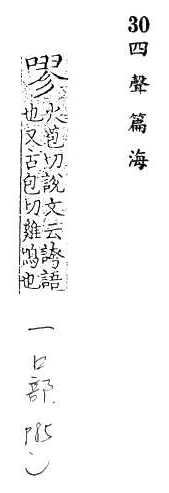 30 四聲篇海
嘐
火苞切說文云誇語
也又古包切雞鳴也
(口部 P85)